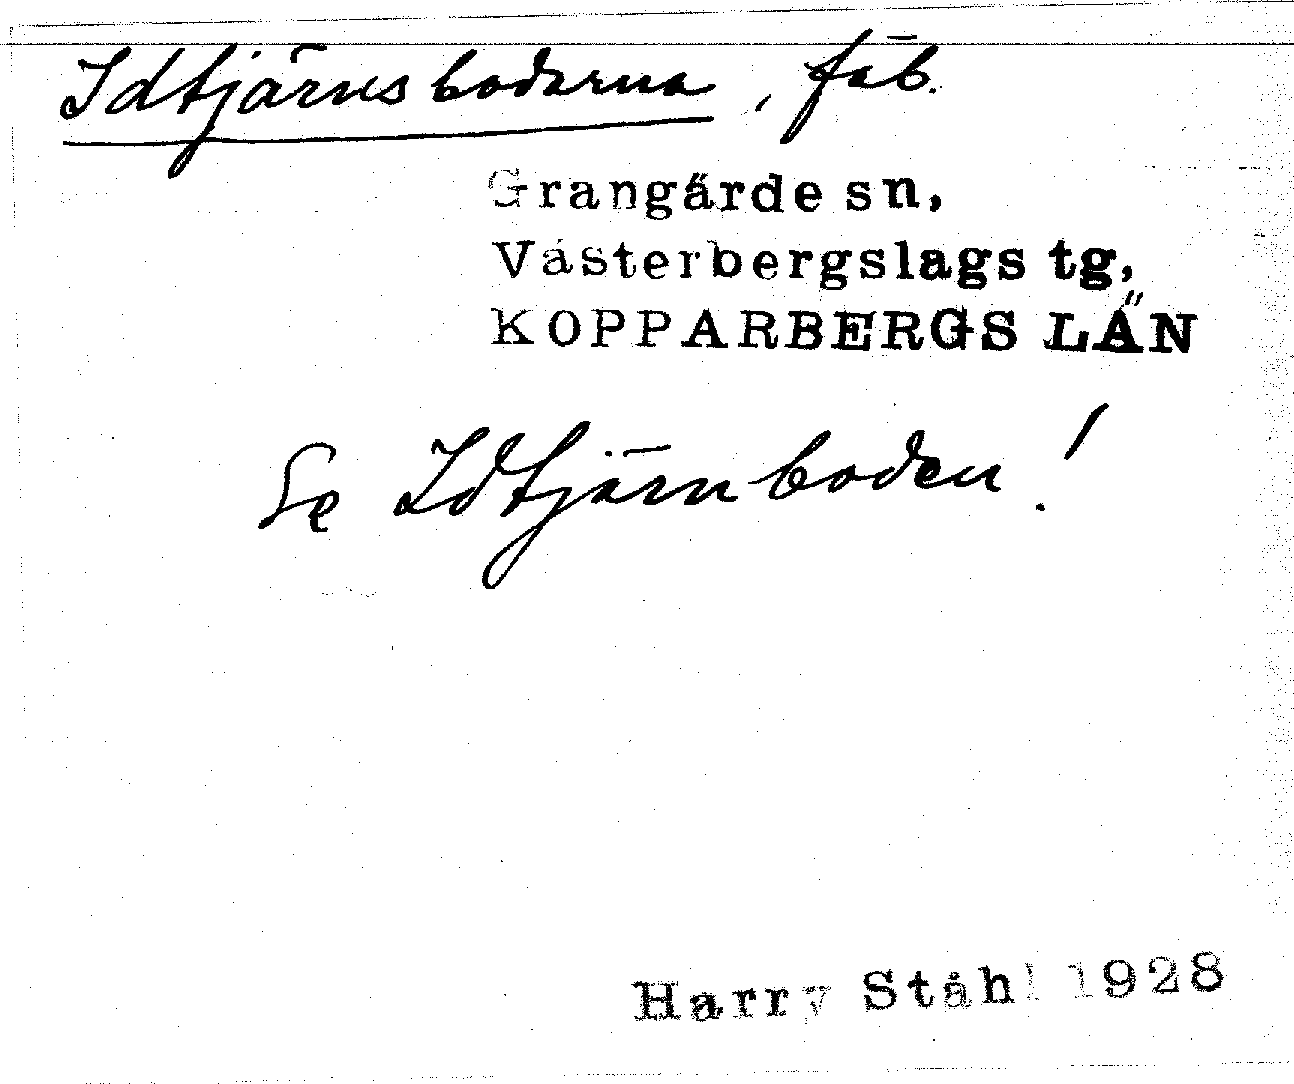 Idtjärnsbodarna, fäb.
Grangärde sn,
Västerbergslags tg,
KOPPARBERGS LÄN
Se Idtjärnboden!
Harry Ståhl 1928